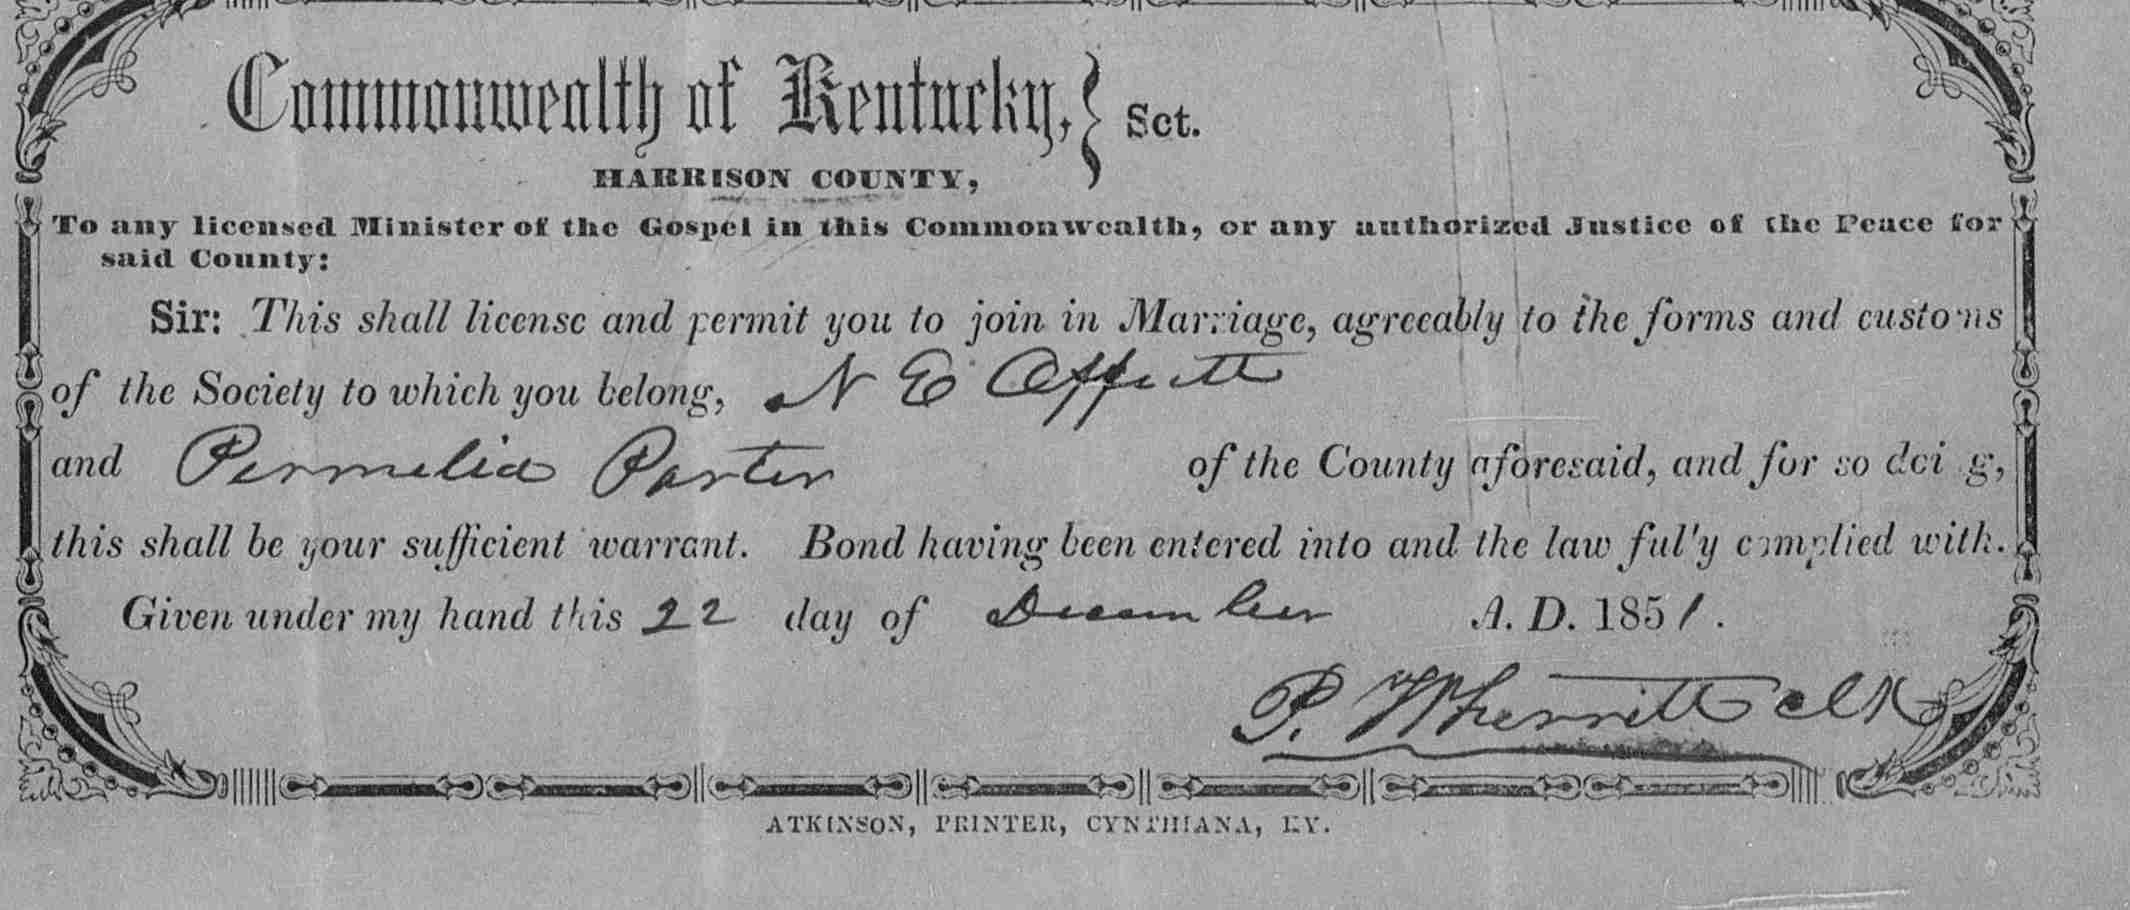 Commonwealth of Kentucky, } Sct.
HARRISON COUNTY,
To any licensed Minister of the Gospel in this Commonwealth, or any authorized Justice of the Peace for
said County:
Sir: This shall license and permit you to join in Marriage, agreeably to the forms and customs
of the Society to which you belong, N E Offutt
and Permelia Porter of the County aforesaid, and for so doing,
this shall be your sufficient warrant. Bond having been entered into and the law fully complied with.
Given under my hand this 22 day of December A. D. 1851.
P. Wherritt clk
ATKINSON, PRINTER, CYNTHIANA, KY.